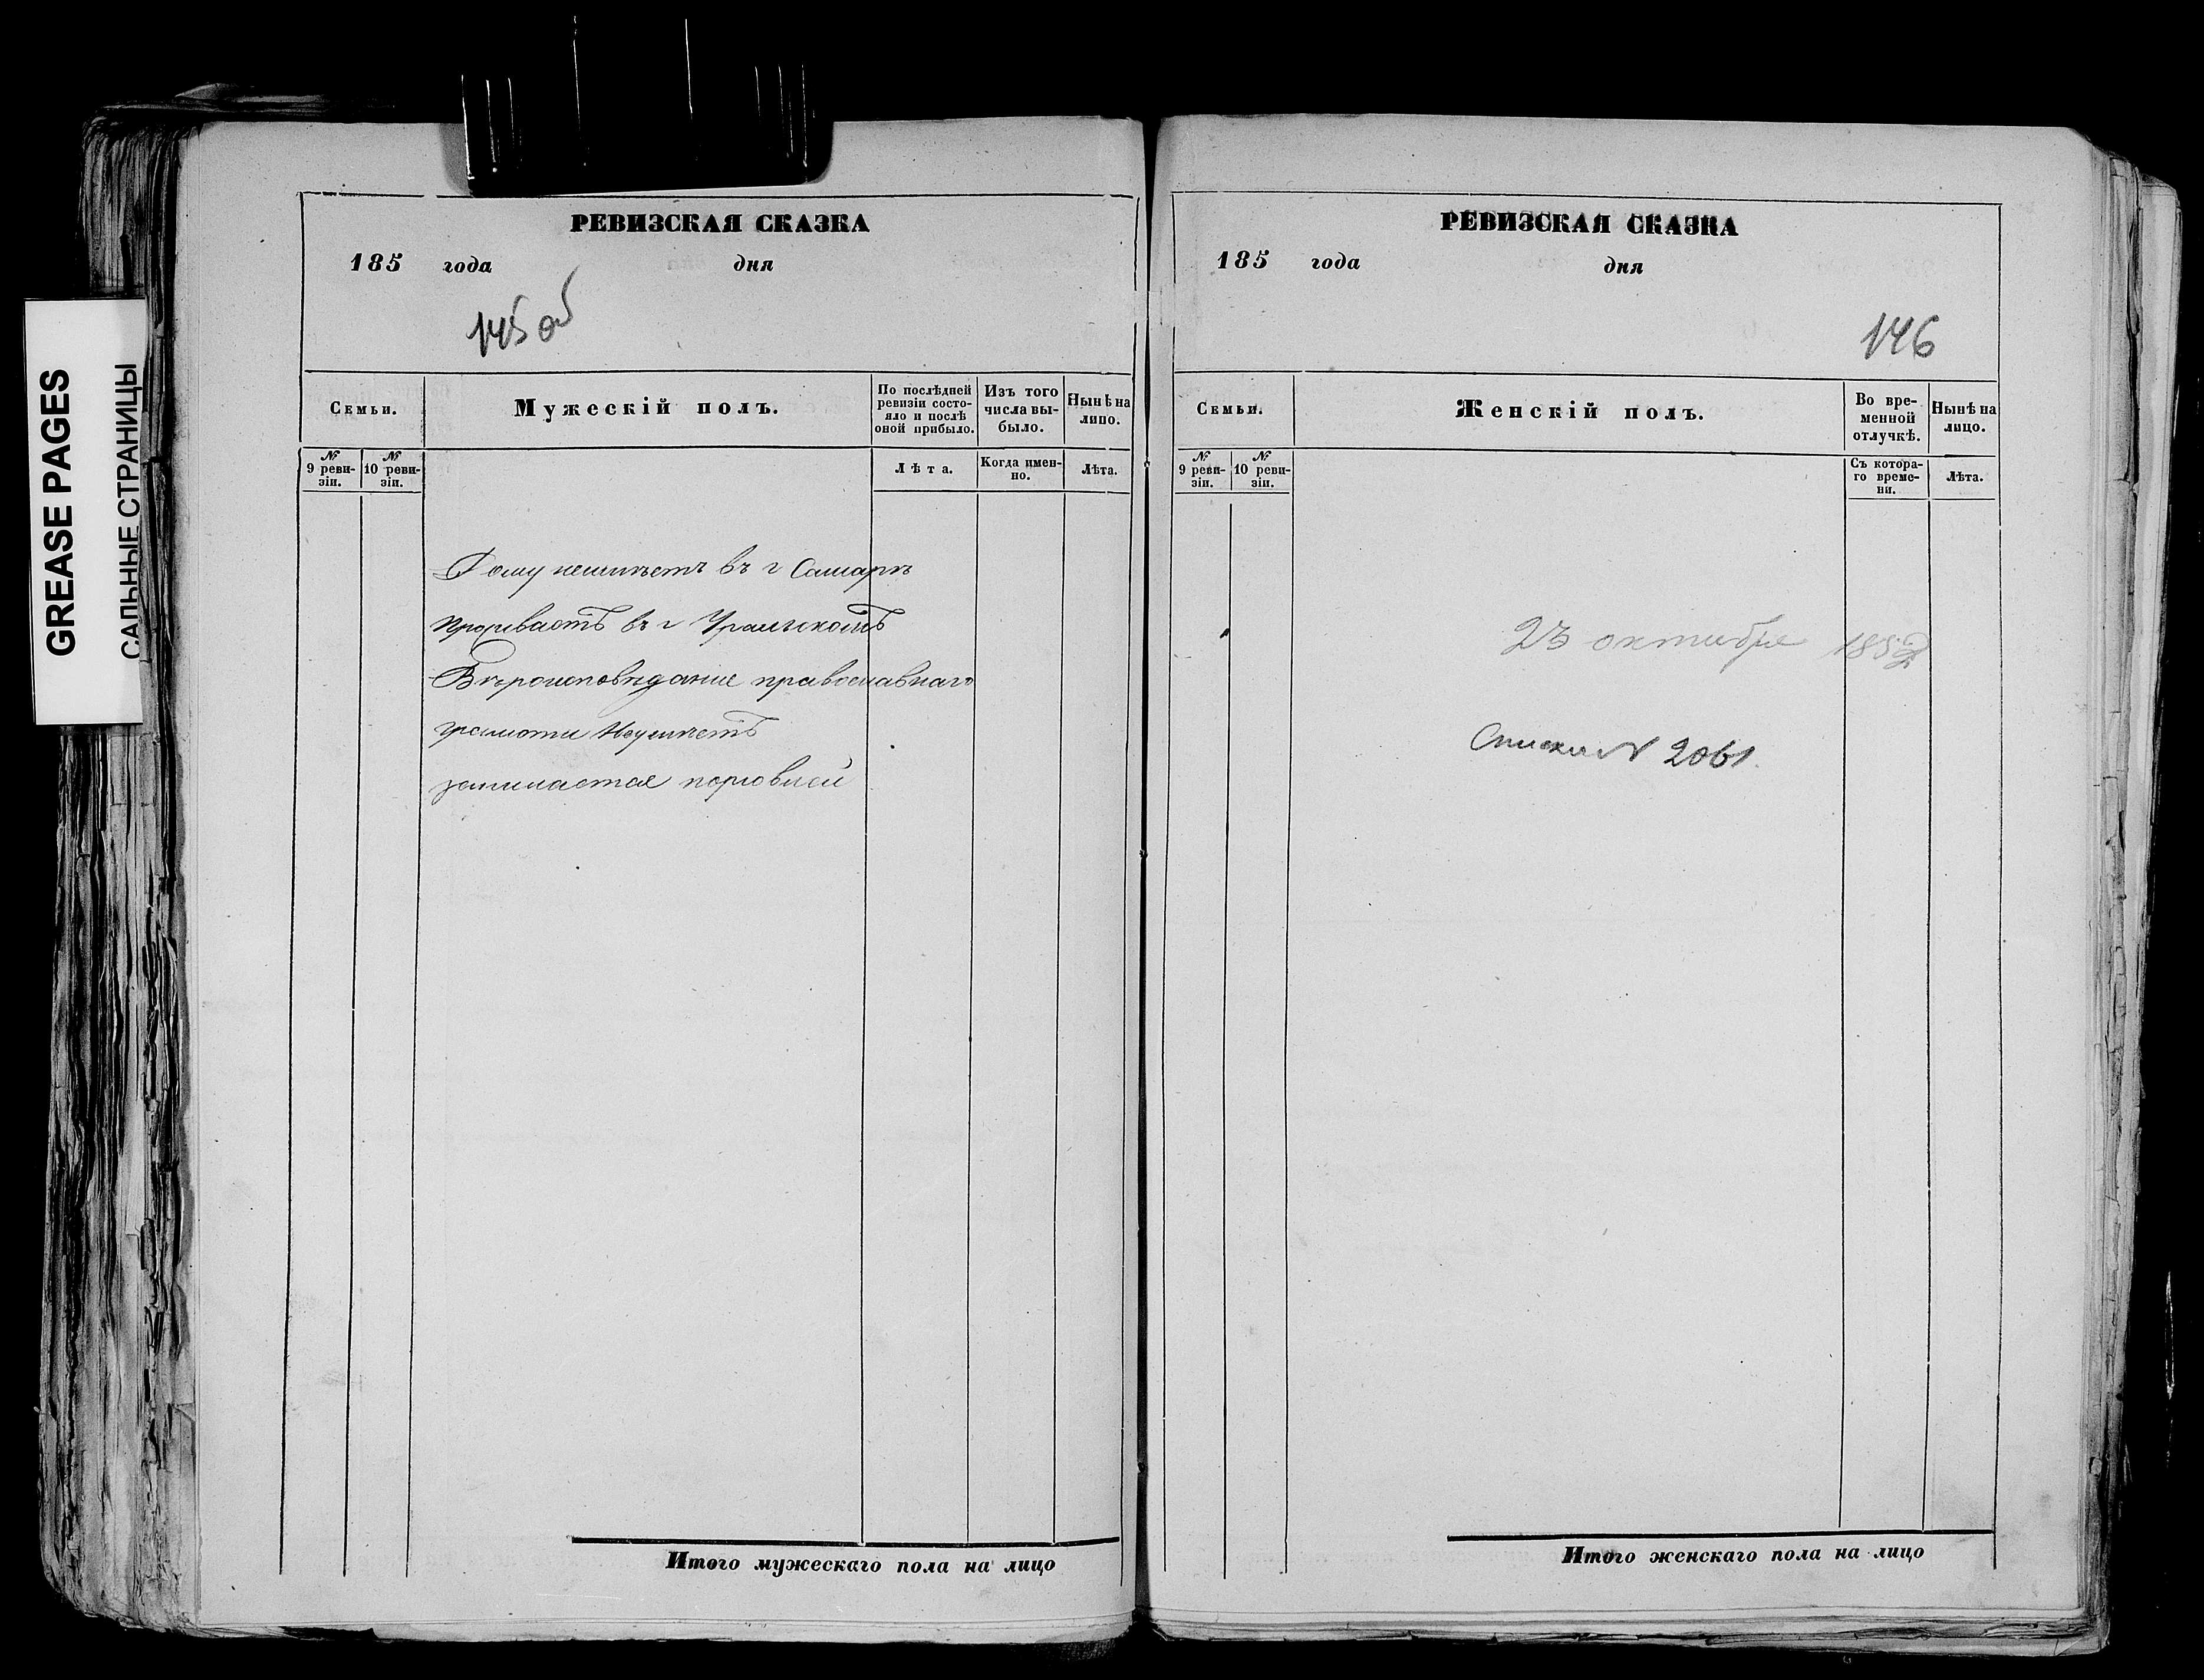 GREASE PAGES
САЛЬНЫЕ СТРАНИЦЫ
РЕВИЗСКАЯ СКАЗКА
185 года дня
145 об
Семьи.
Мужескій полъ.
По послѣдней ревизіи состо-
яло и послѣ оной прибыло.
Изъ того числа вы-
было.
Нынѣ на лицо.
№ 9 реви-
зіи.
№ 10 реви-
зіи.
Лѣта.
Когда имен-
но.
Лѣта.
Дому неимѣетъ въ г Самарѣ
Проживаетъ въ г Уральскомъ
Вѣроисповѣдание православнаго
грамоти Неумѣетъ
занимаетса торговлей
Итого мужескаго пола на лицо
РЕВИЗСКАЯ СКАЗКА
185 года дня
146
Семьи.
Женскій полъ.
Во вре-
менной
отлучкѣ.
Нынѣ на
лицо.
№ 9 реви-
зіи.
№ 10 реви-
зіи.
Съ котора-
го време-
ни.
Лѣта.
23 октября 185
№ 2061.
Итого женскаго пола на лицо